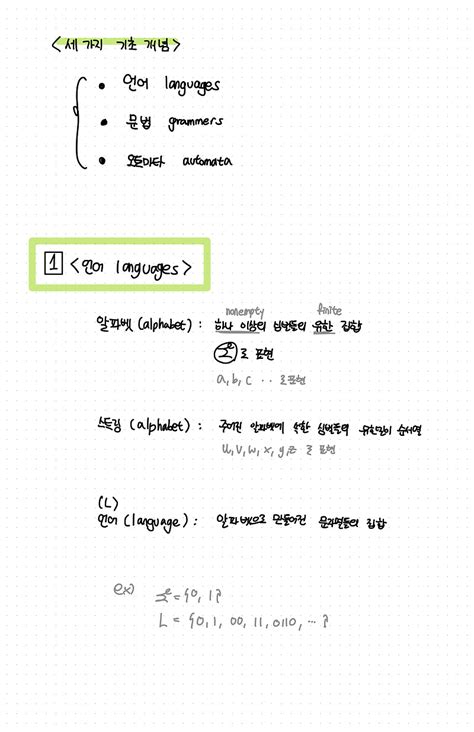 <세 가지 기초 개념>
• 언어 languages
• 문법 grammers
• 오토마타 automata
1 <언어 languages>
nonempty finite
알파벳 (alphabet) : 하나 이상의 심벌들의 유한 집합
Σ로 표현
a, b, c ‥ 로 표현
스트링 (alphabet) : 주어진 알파벳에 속한 심벌들의 유한길이 순서열
u, v, w, x, y, z 로 표현
(L)
언어 (language) : 알파벳으로 만들어진 문자열들의 집합
ex) Σ = {0, 1}
L = {0, 1, 00, 11, 0110, ⋯ }